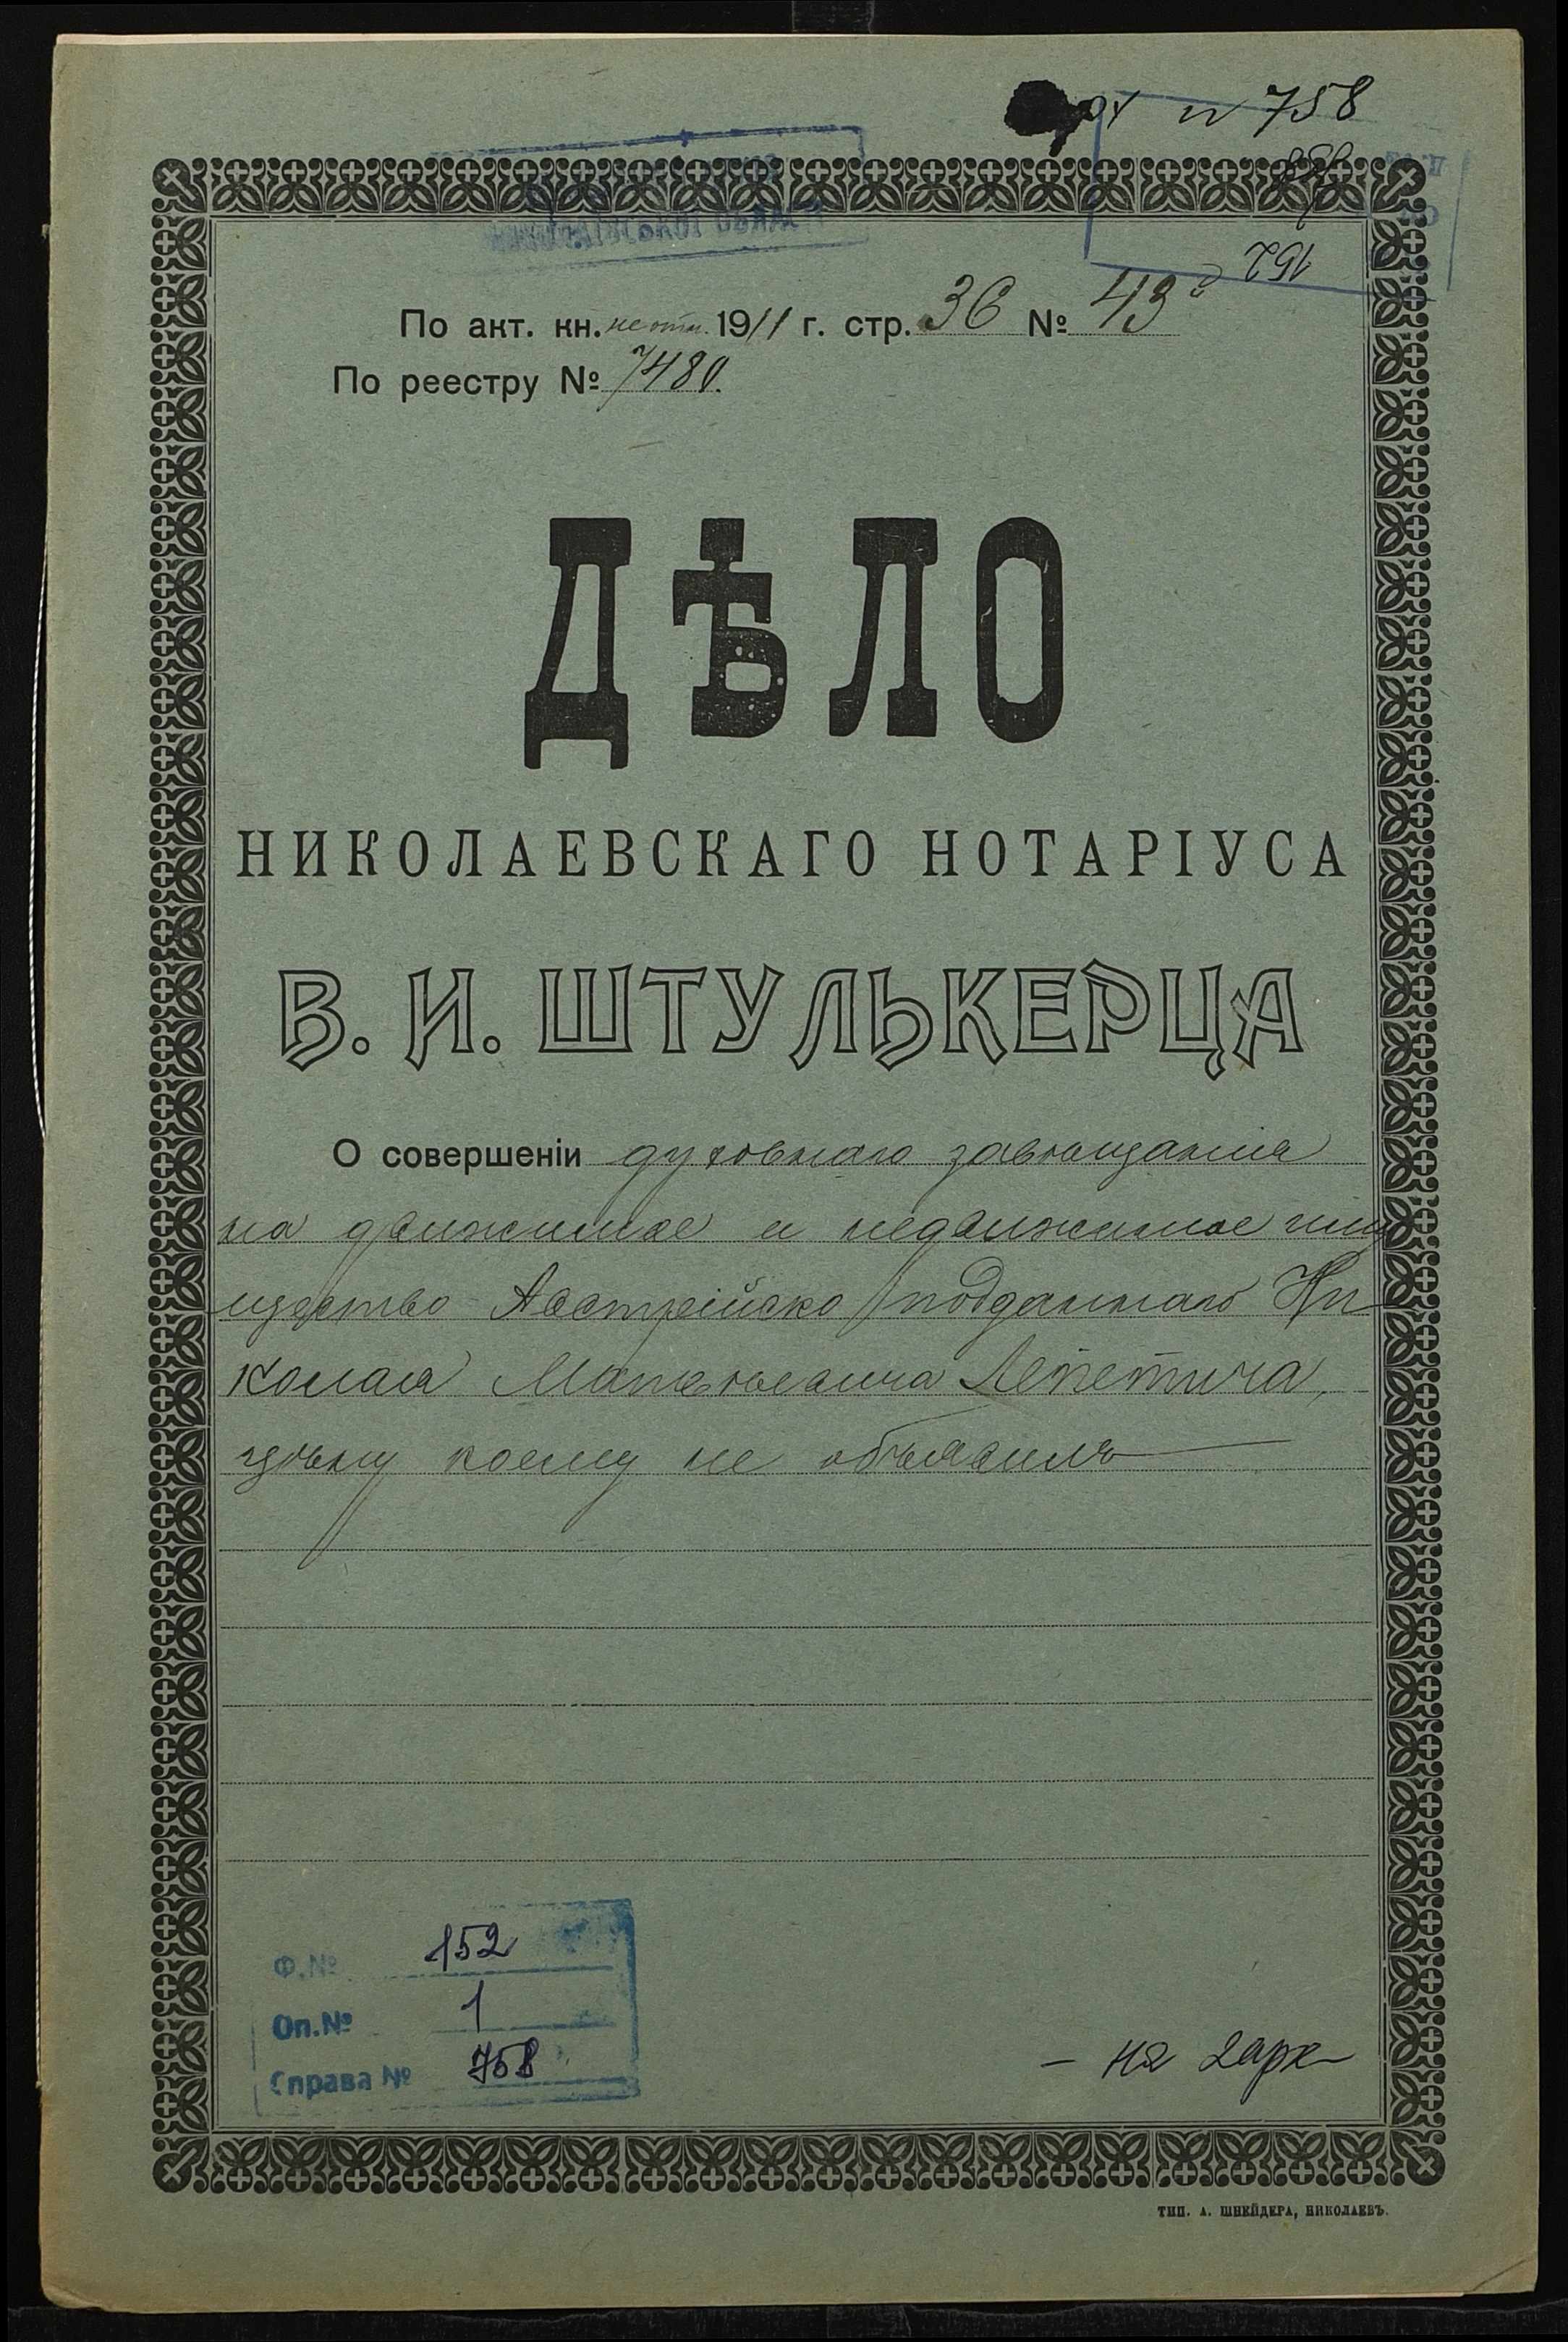 N 758
152
По акт. кн. 1911 г. стр. 36 № 43
По реестру № 7480.
ДѢЛО
НИКОЛАЕВСКАГО НОТАРІУСА
В. И. ШТУЛЬКЕРЦА
О совершеніи духовнаго завѣщанія
на движимое и недвижимое иму
щество Австрійско подданнаго Ни
колая Матвѣевича Лепетича,
цѣну коему не объявилъ
Ф.№ 152
Оп.№ 1
Справа № 758
ТИП. А. ШНЕЙДЕРА, НИКОЛАЕВЪ.